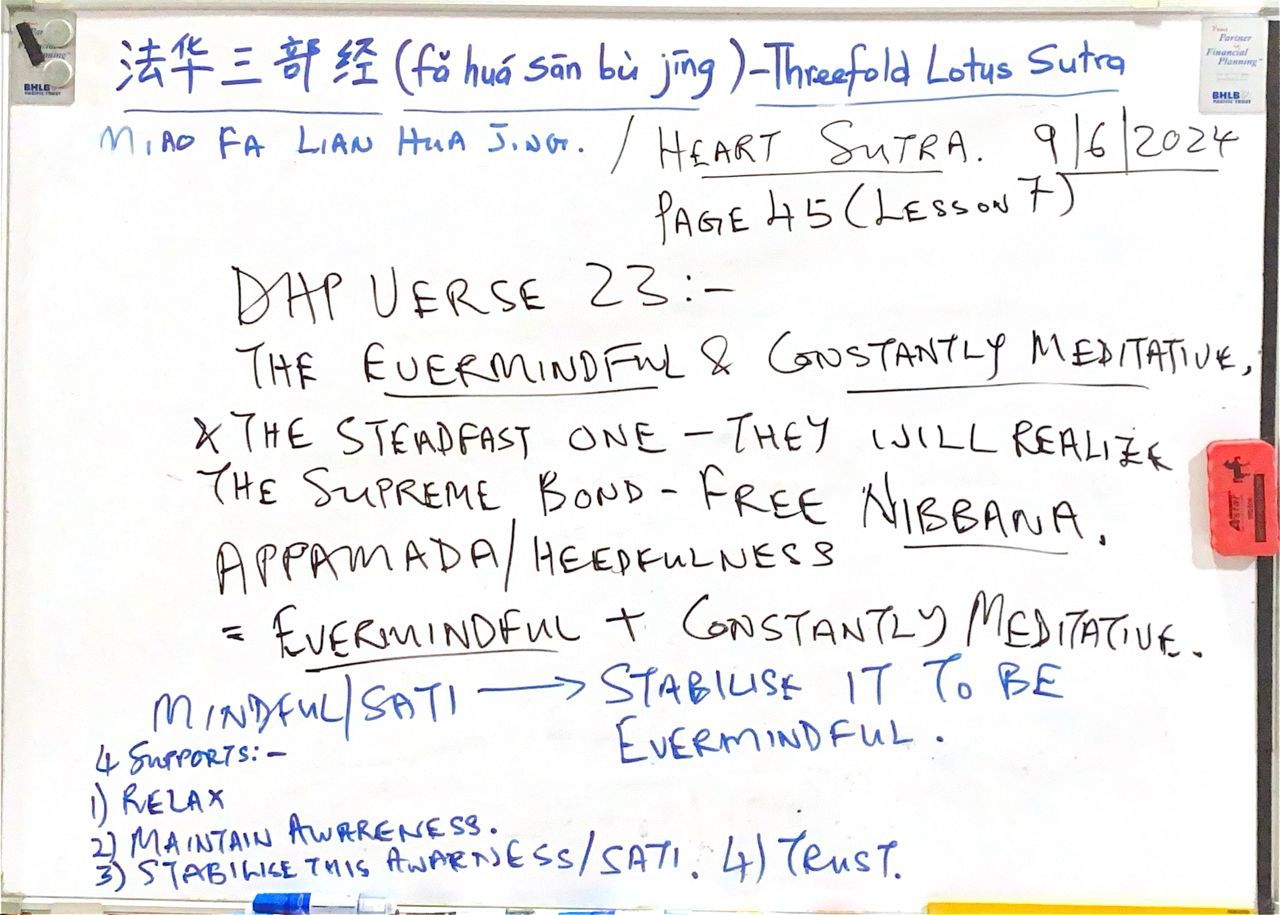 法华三部经 (fǎ huá sān bù jīng) - Threefold Lotus Sutra
MIAO FA LIAN HUA JING. / HEART SUTRA. 9/6/2024
PAGE 45 (LESSON 7)
DHP VERSE 23:-
THE EVERMINDFUL & CONSTANTLY MEDITATIVE,
X THE STEADFAST ONE - THEY WILL REALIZE
THE SUPREME BOND-FREE NIBBANA.
APPAMADA/HEEDFULNESS
= EVERMINDFUL + CONSTANTLY MEDITATIVE.
MINDFUL/SATI → STABILISE IT TO BE
EVERMINDFUL.
4 SUPPORTS:-
1) RELAX
2) MAINTAIN AWARENESS.
3) STABILISE THIS AWARNESS/SATI. 4) TRUST.
Partner
Financial
Planning
BHLB
PACIFIC TRUST
BHLB
PACIFIC TRUST